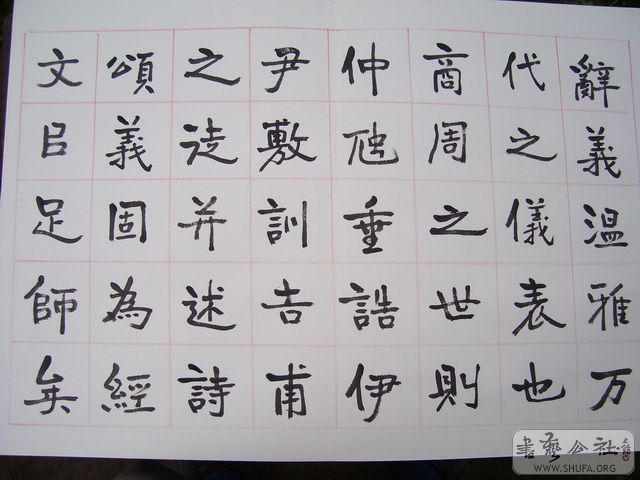 辭義温雅万
代之儀表也
商周之世則
仲虺垂誥伊
尹敷訓吉甫
之徒并述詩
頌義固為經
文㠯足師矣
書藝公社
WWW.SHUFA.ORG